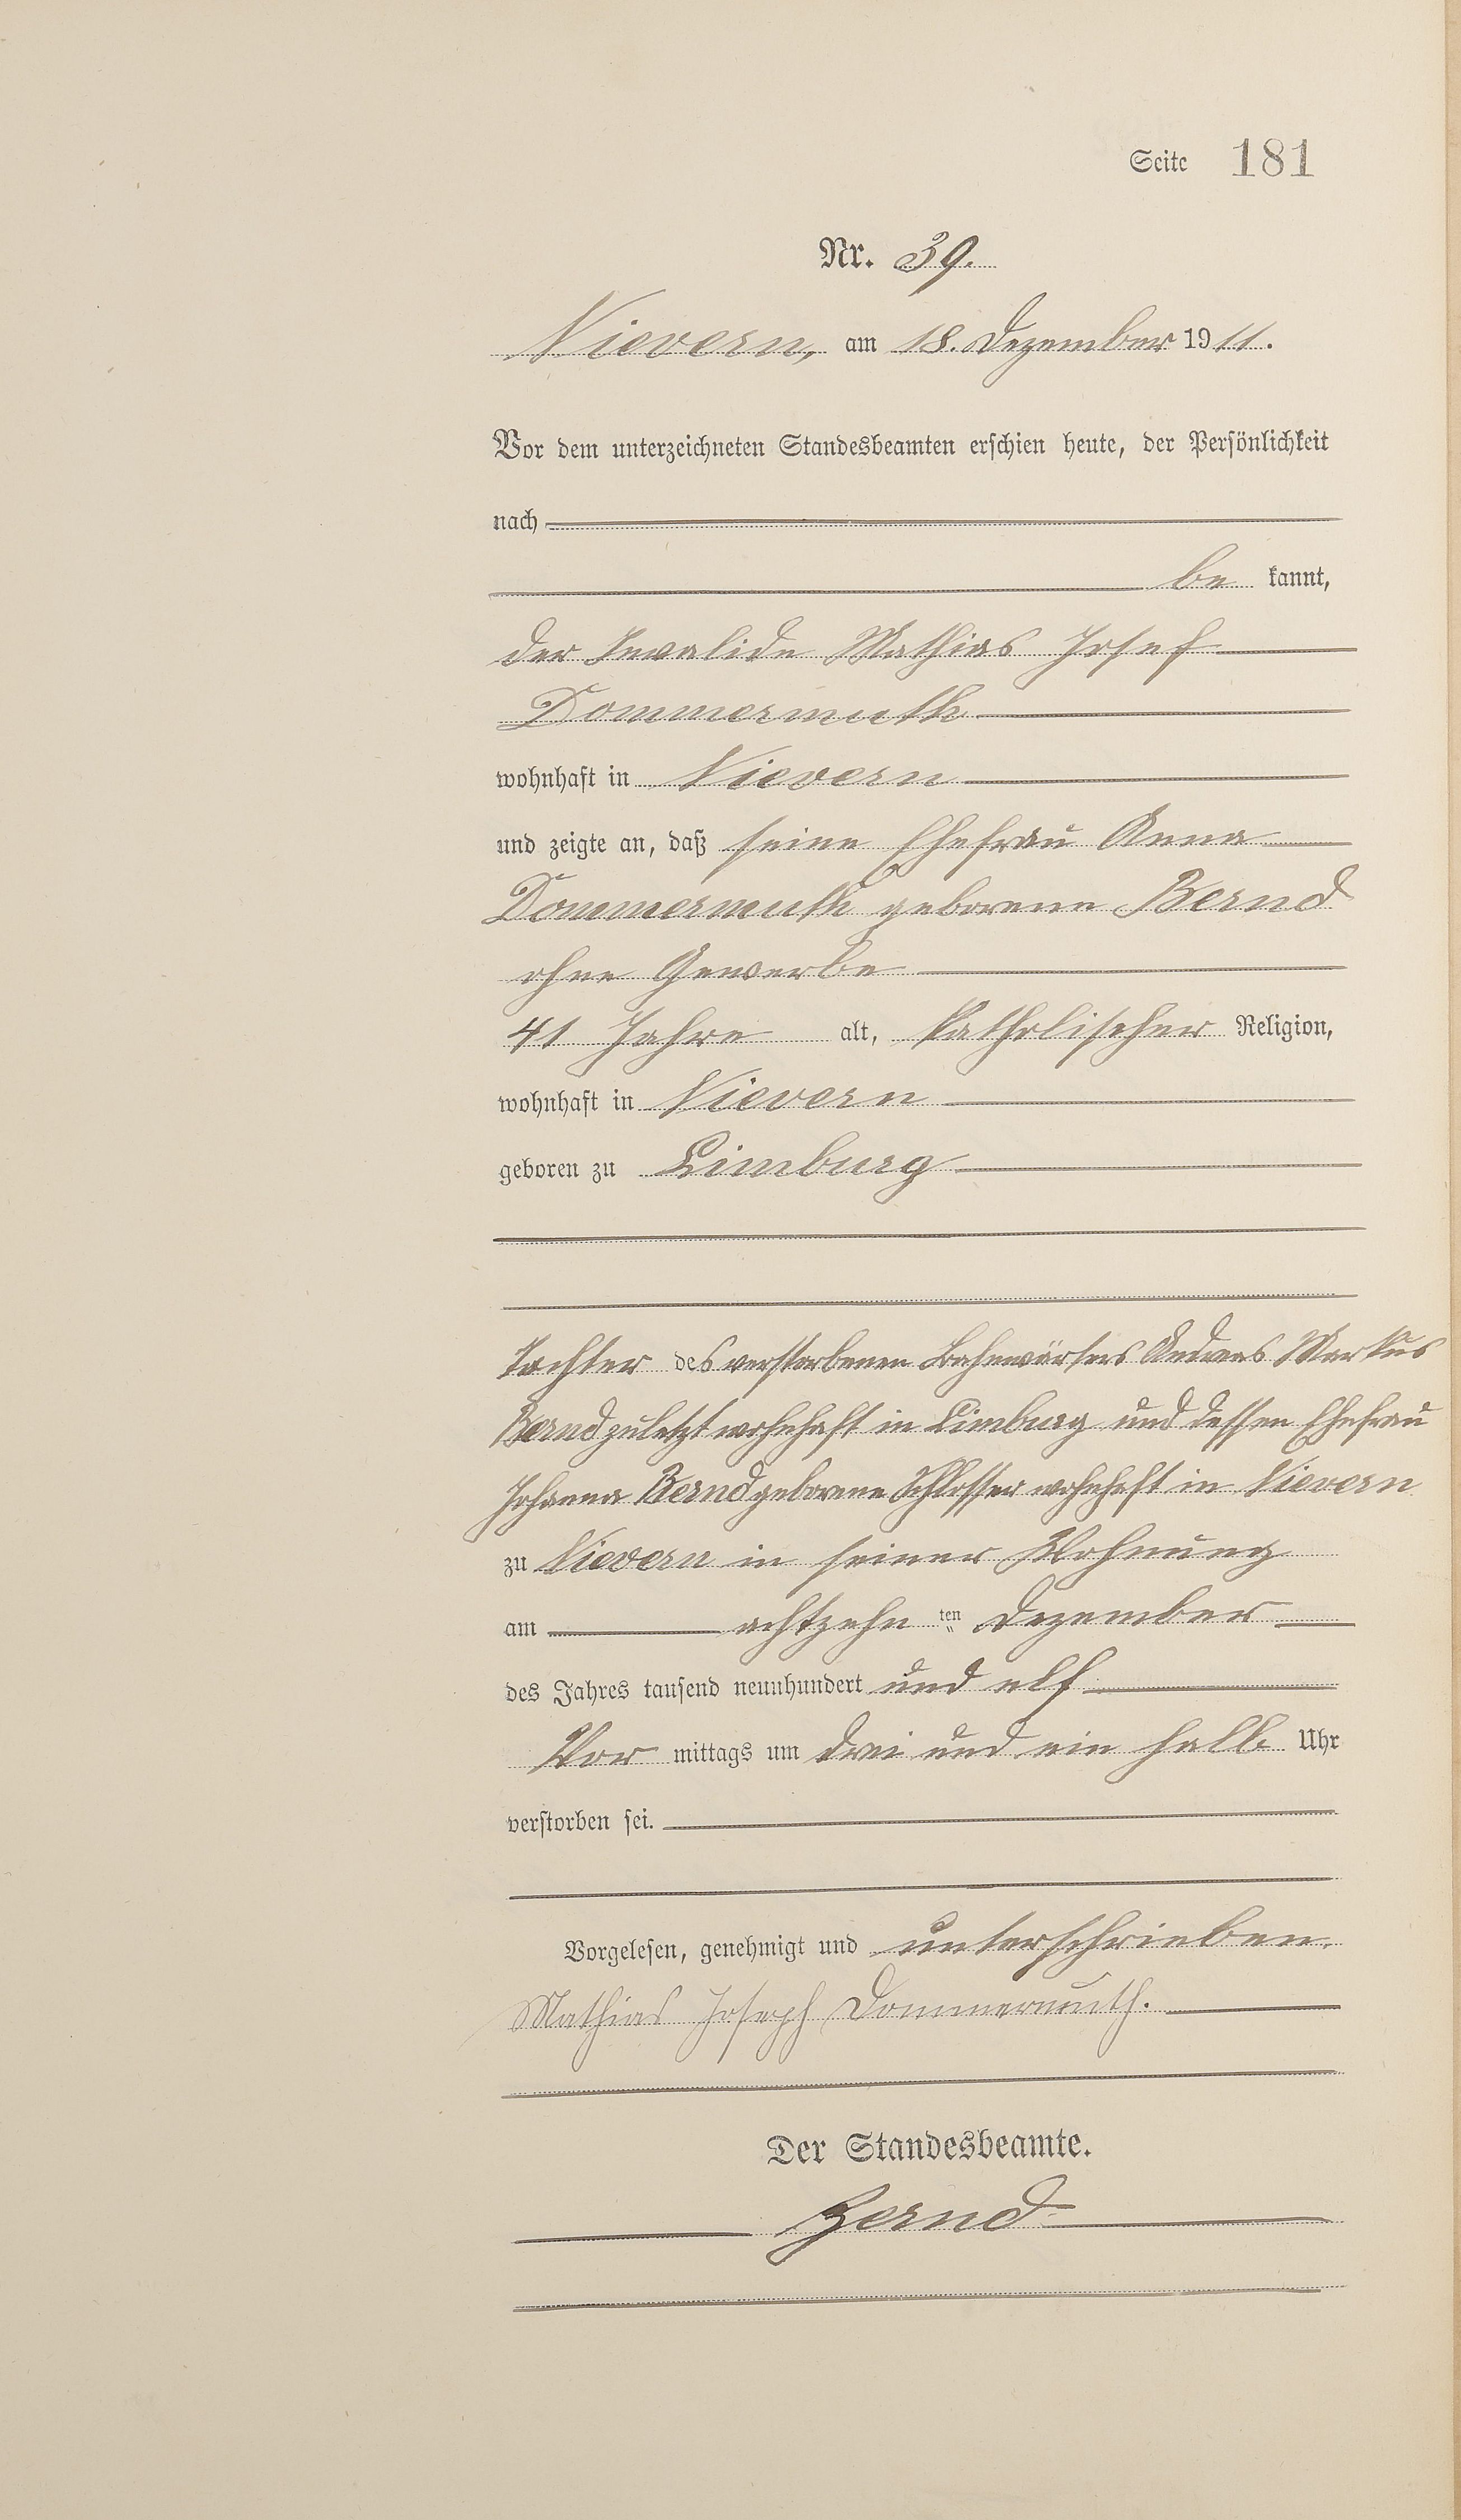 Seite 181
Nr. 39.
Nievern, am 18. Dezember 1911.
Vor dem unterzeichneten Standesbeamten erschien heute, der Persönlichkeit
nach
be kannt,
der Invalide Mathias Josef
Dommermuth
wohnhaft in Nievern
und zeigte an, daß seine Ehefrau Anna
Dommermuth geborene Bernd
ohne Gewerbe
41 Jahre alt, katholischer Religion,
wohnhaft in Nievern
geboren zu Limburg
Tochter des verstorbenen Bahnwärters Andreas Markus
Bernd zuletzt wohnhaft in Limburg und dessen Ehefrau
Johanna Bernd geborene Schlosser wohnhaft in Nievern
zu Nievern in seiner Wohnung
am achtzehn ten Dezember
des Jahres tausend neunhundert und elf
Vor mittags um drei und ein halb Uhr
verstorben sei.
Vorgelesen, genehmigt und unterschrieben.
Mathias Joseph Dommermuth.
Der Standesbeamte.
Bernd